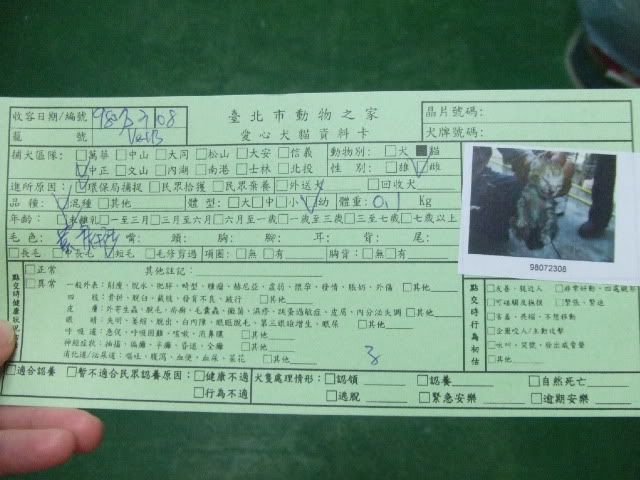 臺北市動物之家
愛心犬貓資料卡
收容日期/編號 98 08
籠號
晶片號碼:
犬牌號碼:
捕犬區隊: □萬華□中山□大同□松山□大安□信義
☑中正□文山□內湖□南港□士林□北投
動物別: □犬■貓
性別: □雄☑雌
進所原因: ☑環保局捕捉□民眾拾獲□民眾棄養□外送犬 □回收犬
品種: ☑混種□其他 體型: □大□中□小☑幼 體重: 0.1 Kg
年齡: ☑未離乳□一至三月□三月至六月□六月至一歲□一歲至三歲□三至七歲□七歲以上
毛色: 嘴: 頭: 胸: 腳: 耳: 背: 尾:
□長毛□中長毛☑短毛□毛修剪過 項圈: □無□有 胸背: □無□有
98072308
點交時健康狀況初評
□正常 其他註記:
□異常 一般外表: 削瘦, 脫水, 肥胖, 畸型, 腫瘤, 赫尼亞, 虛弱, 懷孕, 發情, 脹奶, 外傷 □其他
四肢: 骨折, 脫臼, 截肢, 發育不良, 跛行 □其他
皮膚: 外寄生蟲, 脫毛, 疥癬, 毛囊蟲, 黴菌, 濕疹, 跳蚤過敏症, 皮屑, 內分泌失調 □其他
眼睛: 失明, 萎縮, 脫出, 白內障, 眼瞼脫毛, 第三眼瞼增生, 眼屎 □其他
呼吸道: 急促, 呼吸困難, 咳嗽, 流鼻膿 □其他
神經症狀: 抽搐, 癲癇, 半癱, 昏迷, 全癱 □其他
消化道/泌尿道: 嘔吐, 腹瀉, 血便, 血尿, 蛋花 □其他
點交時行為初估
□友善, 親近人 □非常好動, 四處
□可碰觸及撫摸 □緊張, 緊迫
□害羞, 畏縮, 不想移動
□企圖咬人/主動攻擊
□吠叫, 哭號, 發出威脅聲
□其他
□適合認養 □暫不適合民眾認養原因: □健康不適
□行為不適
犬隻處理情形: □認領 □認養 □自然死亡
□逃脫 □緊急安樂 □逾期安樂